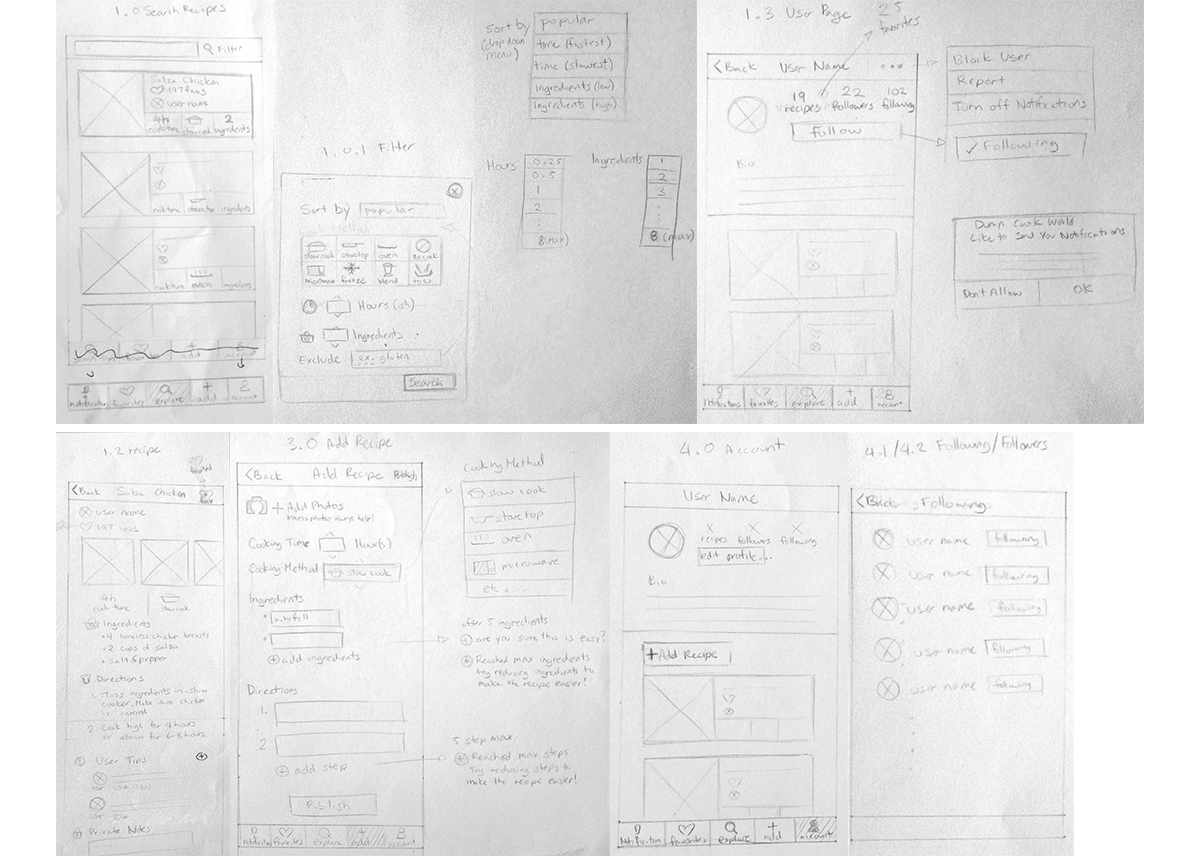 1.0 Search Recipes
Filter
Salsa Chicken
197 favs
user name
4h
2
cooktime slowcook ingredients
cooktime stovetop ingredients
cooktime oven ingredients
add
notifications favorites explore add account
1.0.1 Filter
Sort by popular
slowcook stovetop oven no cook
microwave freeze blend toss
Hours (ish)
Ingredients
Exclude ex. gluten
Search
Sort by
(dropdown
menu)
popular
time (fastest)
time (slowest)
Ingredients (low)
Ingredients (high)
Hours
0.25
0.5
1
2
8 (max)
Ingredients
1
2
3
8 (max)
1.3 User Page
25
favorites
< Back User Name
19 22 102
recipes followers following
Follow
Bio
notifications favorites explore add account
Block User
Report
Turn off Notifications
✓ Following
Dump Cook Would
Like to Send You Notifications
Don't Allow OK
1.2 recipe
< Back Salsa Chicken fav
user name
197 favs
4h
cook time slowcook
Ingredients
• 4 boneless chicken breasts
• 2 cups of salsa
• salt & pepper
Directions
1. Toss ingredients in slow
cooker. Make sure chicken
is covered
2. Cook high for 4 hours
or slow for 6-8 hours
User Tips
Private Notes
3.0 Add Recipe
< Back Add Recipe Publish
+ Add Photos
photos always help!
Cooking Time Hour(s)
Cooking Method slow cook
Ingredients
• autofill
+ add ingredients
Directions
1.
2.
+ add step
Publish
notification favorites explore add account
Cooking Method
slow cook
stove top
oven
microwave
etc....
after 5 ingredients
+ are you sure this is easy?
+ Reached max ingredients
try reducing ingredients to
make the recipe easier!
5 step max
+ Reached max steps
Try reducing steps to
make the recipe easier!
4.0 Account
User Name
X X X
recipes followers following
edit profile...
Bio
+ Add Recipe
Notification favorites explore add account
4.1/4.2 Following/Followers
< Back Following
user name following
user name following
user name following
user name following
user name following